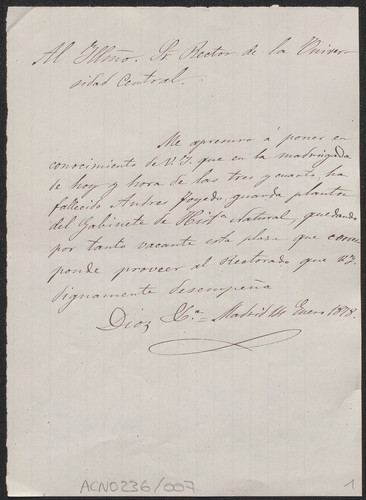 Al Illmo. Sr. Rector de la Univer-
sidad Central.
Me apresuro á poner en
conocimiento de V.I. que en la madrugada
de hoy y hora de las tres y cuarto, ha
fallecido Andres guarda plantor
del Gabinete de Hista natural, quedando
por tanto vacante esta plaza que corres
ponde proveer al Rectorado que V.I.
dignamente desempeña
Dios &.ª = Madrid 14 Enero 1878.
ACN0236/007
1